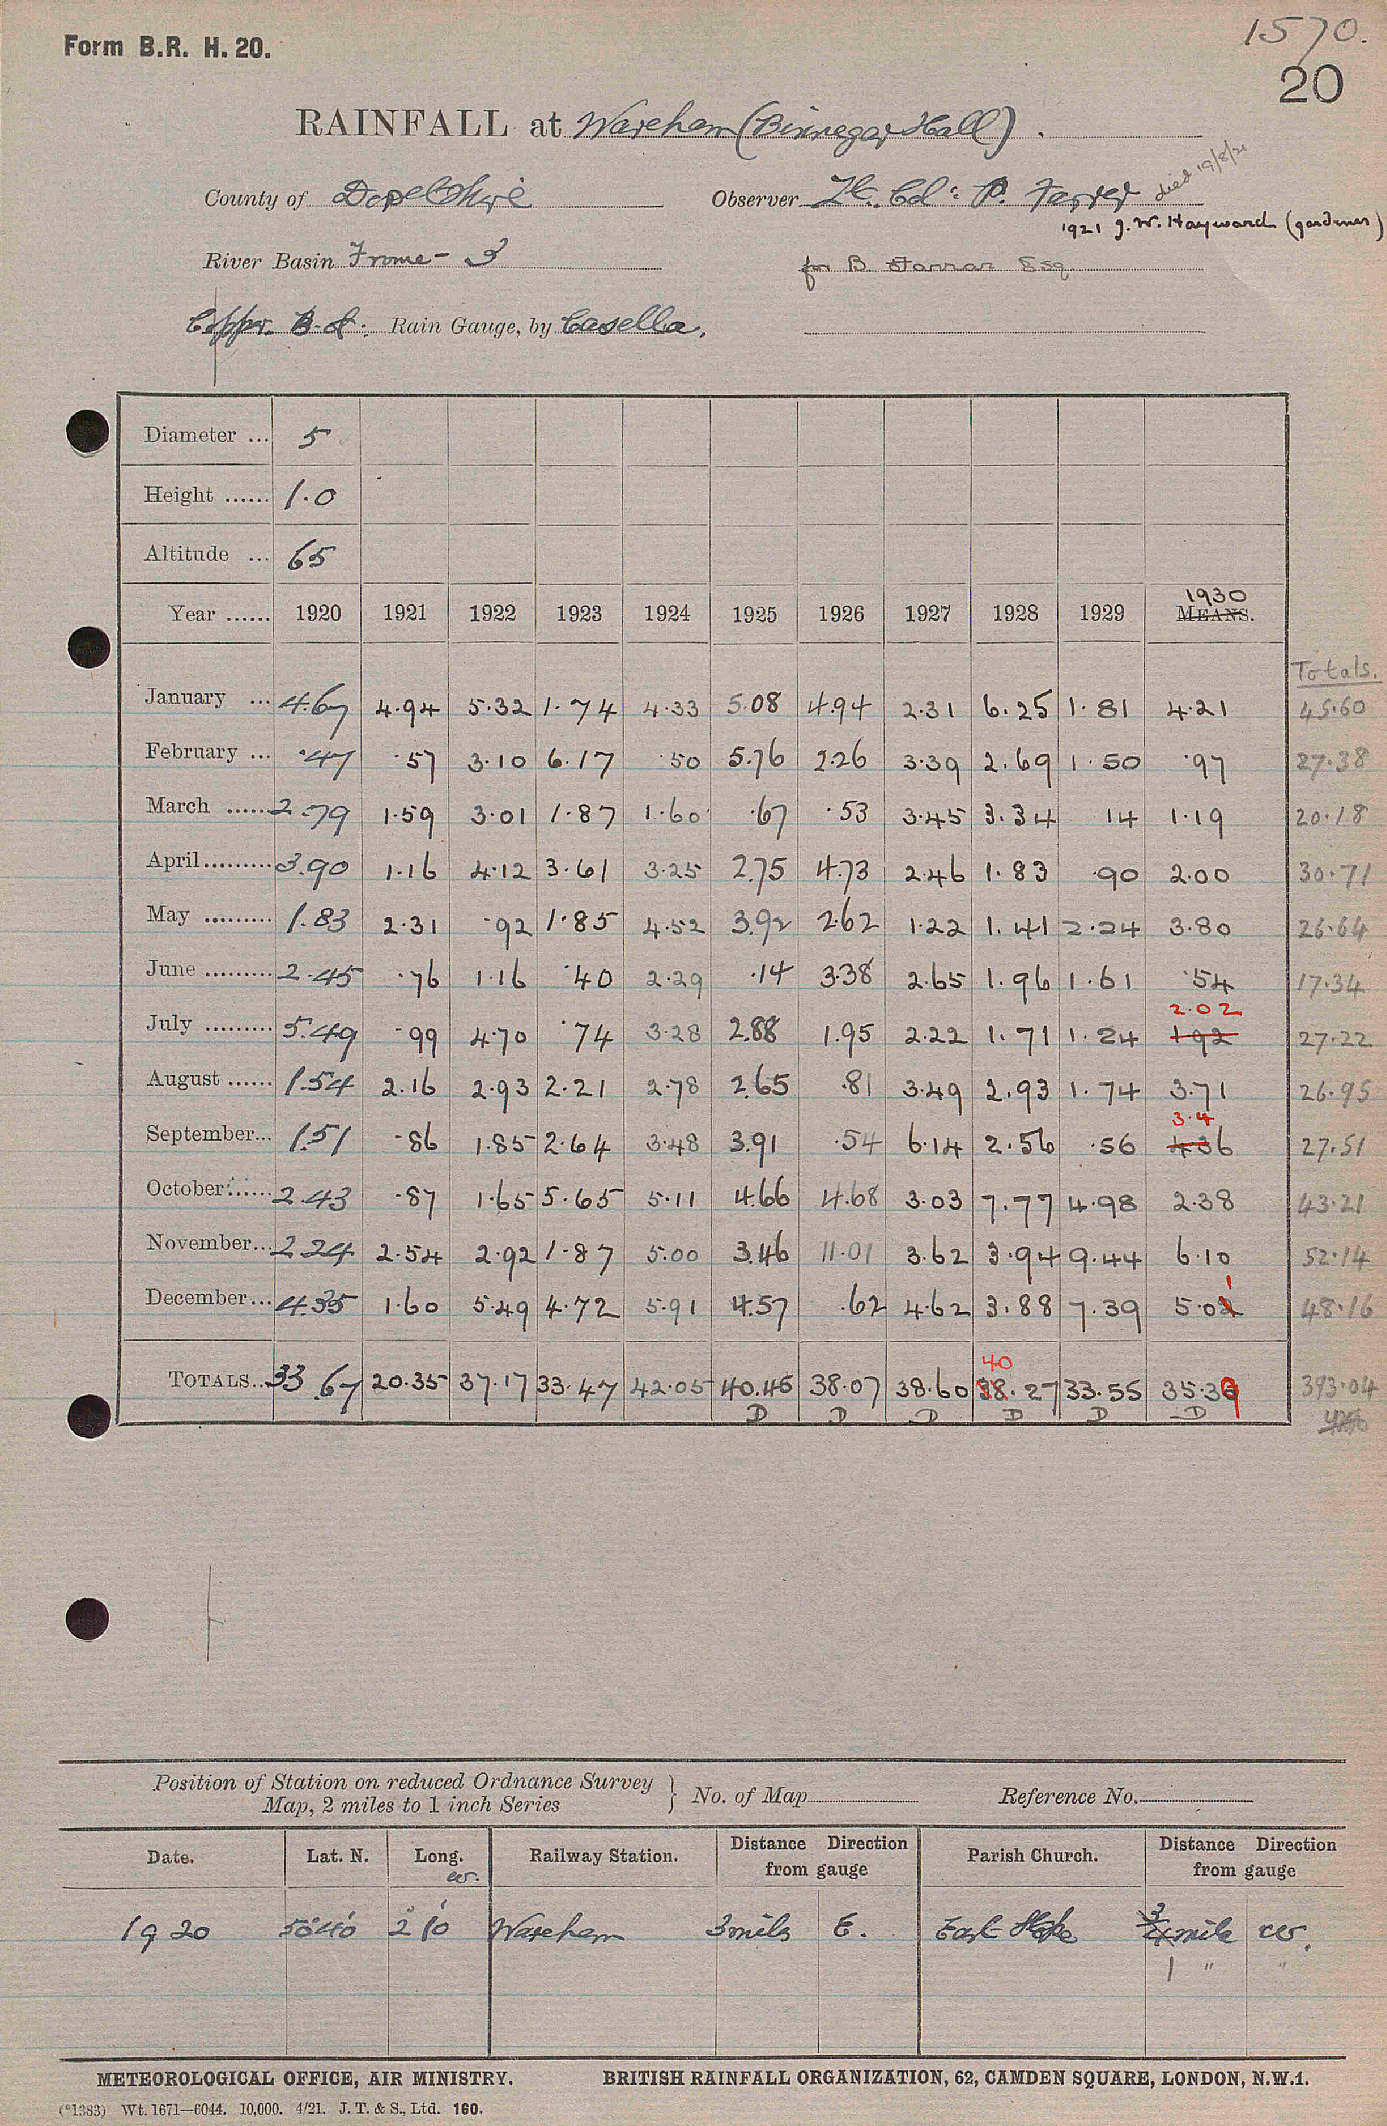 Form B.R. H. 20.
1570.
20
RAINFALL at Wareham (Binnegar Hall).
County of Dorsetshire Observer Lt. Col: P. Farrer died 19/8/21
1921 J. W. Hayward (gardener)
River Basin Frome - 3 for B Farrar Esq
Copper. Rain Gauge, by Casella.
Diameter ... 5
Height ...... 1.0
Altitude ... 65
1930
Year ...... 1920 1921 1922 1923 1924 1925 1926 1927 1928 1929 MEANS.
Totals.
January ... 4.67 4.94 5.32 1.74 4.33 5.08 4.94 2.31 6.25 1.81 4.21 45.60
February ... .47 .57 3.10 6.17 .50 5.76 2.26 3.39 2.69 1.50 .97 27.38
March ...... 2.79 1.59 3.01 1.87 1.60 .67 .53 3.45 3.34 14 1.19 20.18
April ......... 3.90 1.16 4.12 3.61 3.25 2.75 4.73 2.46 1.83 .90 2.00 30.71
May ......... 1.83 2.31 .92 1.85 4.52 3.92 2.62 1.22 1.41 2.24 3.80 26.64
June ......... 2.45 .76 1.16 .40 2.29 .14 3.38 2.65 1.96 1.61 .54 17.34
2.02
July ......... 5.49 .99 4.70 .74 3.28 2.88 1.95 2.22 1.71 1.24 192 27.22
August ...... 1.54 2.16 2.93 2.21 2.78 2.65 .81 3.49 2.93 1.74 3.71 26.95
3.4
September... 1.51 .86 1.85 2.64 3.48 3.91 .54 6.14 2.56 .56 436 27.51
October ...... 2.43 .87 1.65 5.65 5.11 4.66 4.68 3.03 7.77 4.98 2.38 43.21
November... 2.24 2.54 2.92 1.87 5.00 3.46 11.01 3.62 3.94 9.44 6.10 52.14
1
December... 4.35 1.60 5.49 4.72 5.91 4.57 .62 4.62 3.88 7.39 5.02 48.16
40
TOTALS... 33.67 20.35 37.17 33.47 42.05 40.45 38.07 38.60 38.27 33.55 35.39 393.04
D D D D D D
Position of Station on reduced Ordnance Survey Map, 2 miles to 1 inch Series } No. of Map Reference No.
Date. Lat. N. Long. W. Railway Station. Distance Direction from gauge Parish Church. Distance Direction from gauge
1920 50°40' 2°10' Wareham 3 miles E. East Stoke 3/4 mile W.
1 " "
METEOROLOGICAL OFFICE, AIR MINISTRY. BRITISH RAINFALL ORGANIZATION, 62, CAMDEN SQUARE, LONDON, N.W.1.
(*1383) Wt. 1671—6044. 10,000. 4/21. J. T. & S., Ltd. 160.